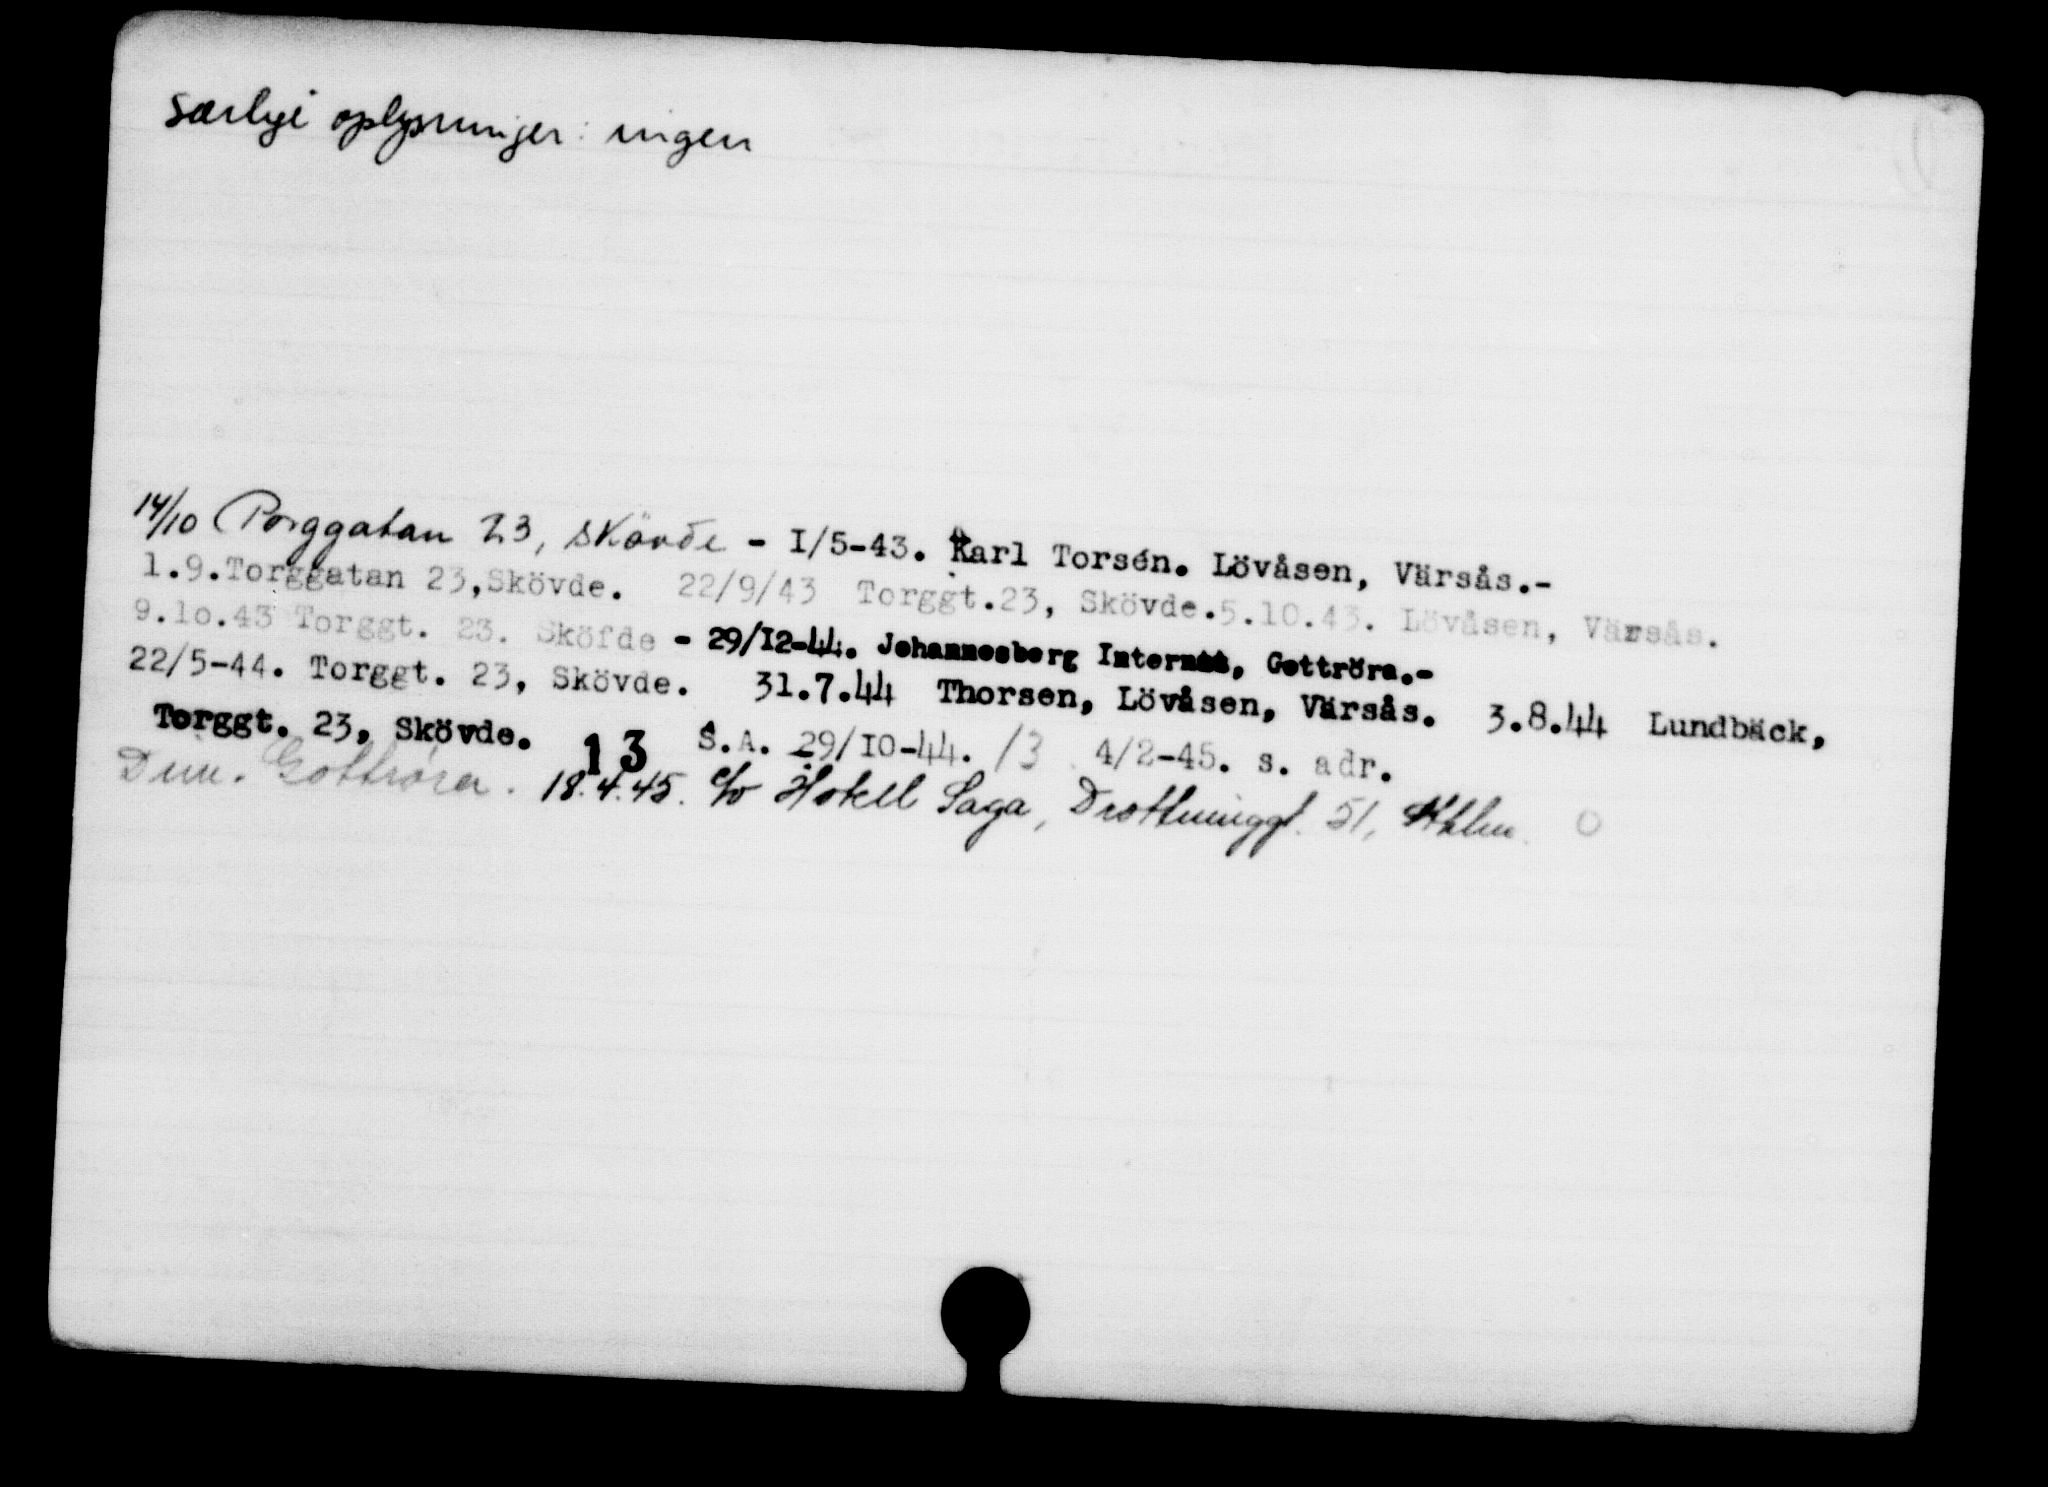 Særlige oplysninger: ingen
14/10 Torggatan 23, Skövde - I/5-43. Karl Torsén. Lövåsen, Värsås.-
1.9.Torggatan 23,Skövde. 22/9/43 Torggt.23, Skövde.5.10.43. Lövåsen, Värsås.
9.1o.43 Torggt. 23. Sköfde - 29/I2-44. Johannesberg Internat, Gottröra.-
22/5-44. Torggt. 23, Skövde. 31.7.44 Thorsen, Lövåsen, Värsås. 3.8.44 Lundbäck,
Torggt. 23, Skövde. 13 S.A. 29/IO-44. 13 4/2-45. s. adr.
Dim. Gottröra. 18.4.45. c/o Hotell Saga, Drottninggt. 51, Sthlm.